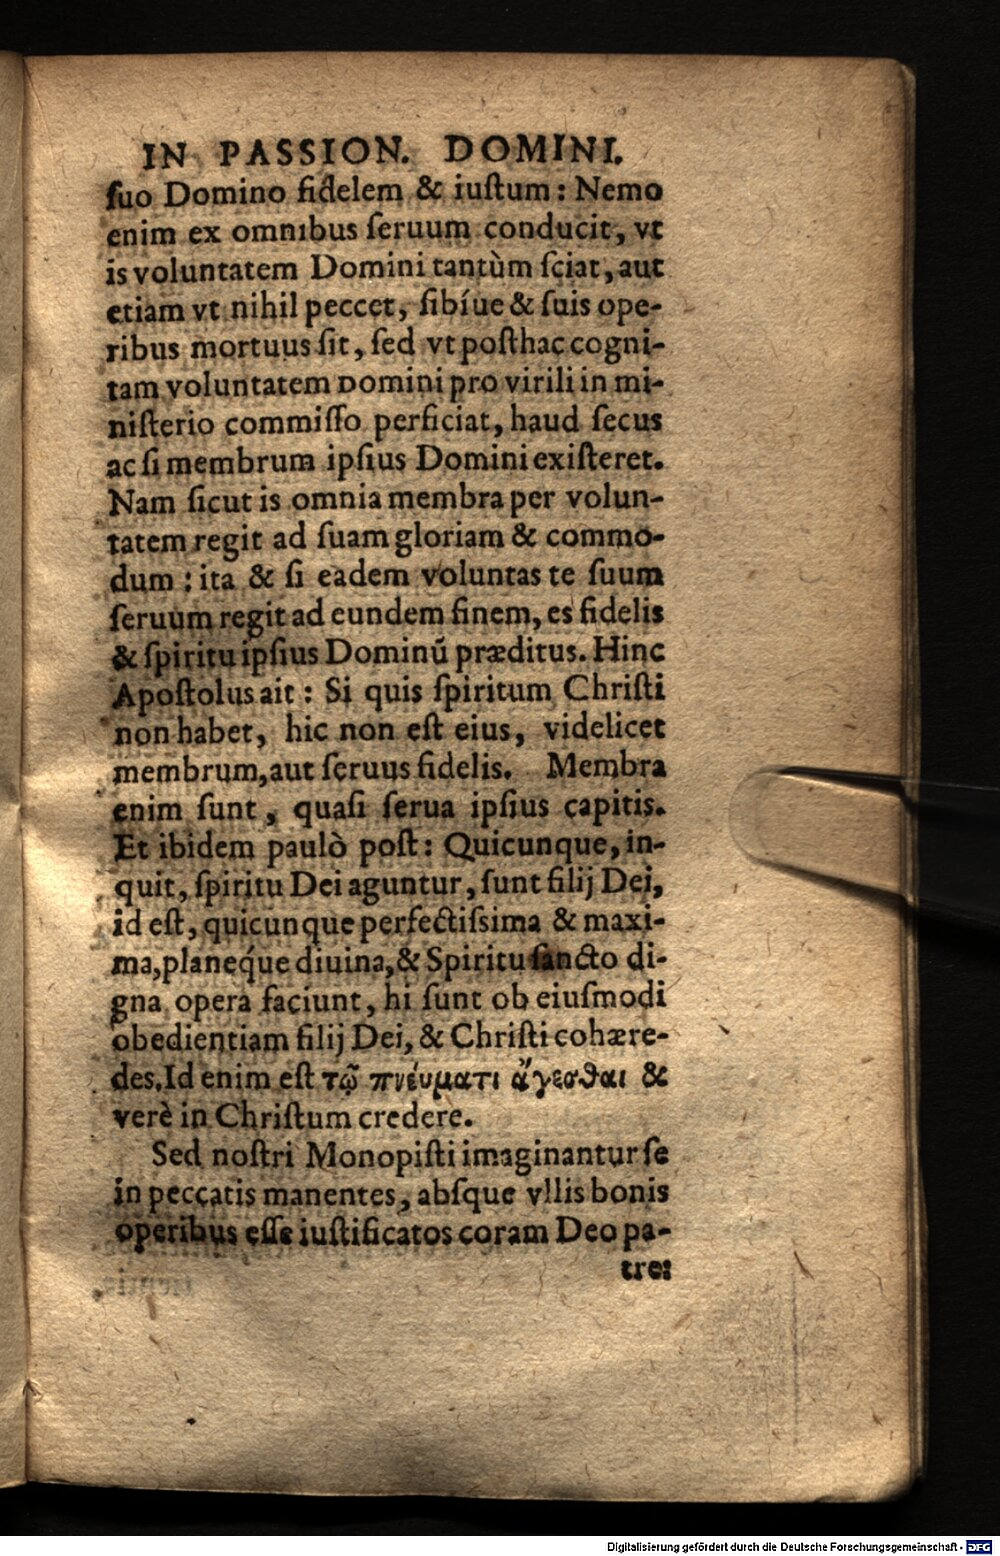 IN PASSION. DOMINI.
ſuo Domino fidelem & iuſtum: Nemo
enim ex omnibus ſeruum conducit, vt
is voluntatem Domini tantùm ſciat, aut
etiam vt nihil peccet, ſibíue & ſuis ope-
ribus mortuus ſit, ſed vt poſthac cogni-
tam voluntatem Domini pro virili in mi-
niſterio commiſſo perficiat, haud ſecus
ac ſi membrum ipſius Domini exiſteret.
Nam ſicut is omnia membra per volun-
tatem regit ad ſuam gloriam & commo-
dum: ita & ſi eadem voluntas te ſuum
ſeruum regit ad eundem finem, es fidelis
& ſpiritu ipſius Dominũ præditus. Hinc
Apoſtolus ait: Si quis ſpiritum Chriſti
non habet, hic non eſt eius, videlicet
membrum, aut ſeruus fidelis. Membra
enim ſunt, quaſi ſerua ipſius capitis.
Et ibidem paulò poſt: Quicunque, in-
quit, ſpiritu Dei aguntur, ſunt filij Dei,
id eſt, quicunque perfectiſsima & maxi-
ma, planeq́ue diuina, & Spiritu ſancto di-
gna opera faciunt, hi ſunt ob eiuſmodi
obedientiam filij Dei, & Chriſti cohære-
des. Id enim eſt τῷ πνέυματι ἄγεσθαι &
verè in Chriſtum credere.
Sed noſtri Monopiſti imaginantur ſe
in peccatis manentes, abſque vllis bonis
operibus eſſe iuſtificatos coram Deo pa-
tre:
Digitalisierung gefördert durch die Deutsche Forschungsgemeinschaft - DFG